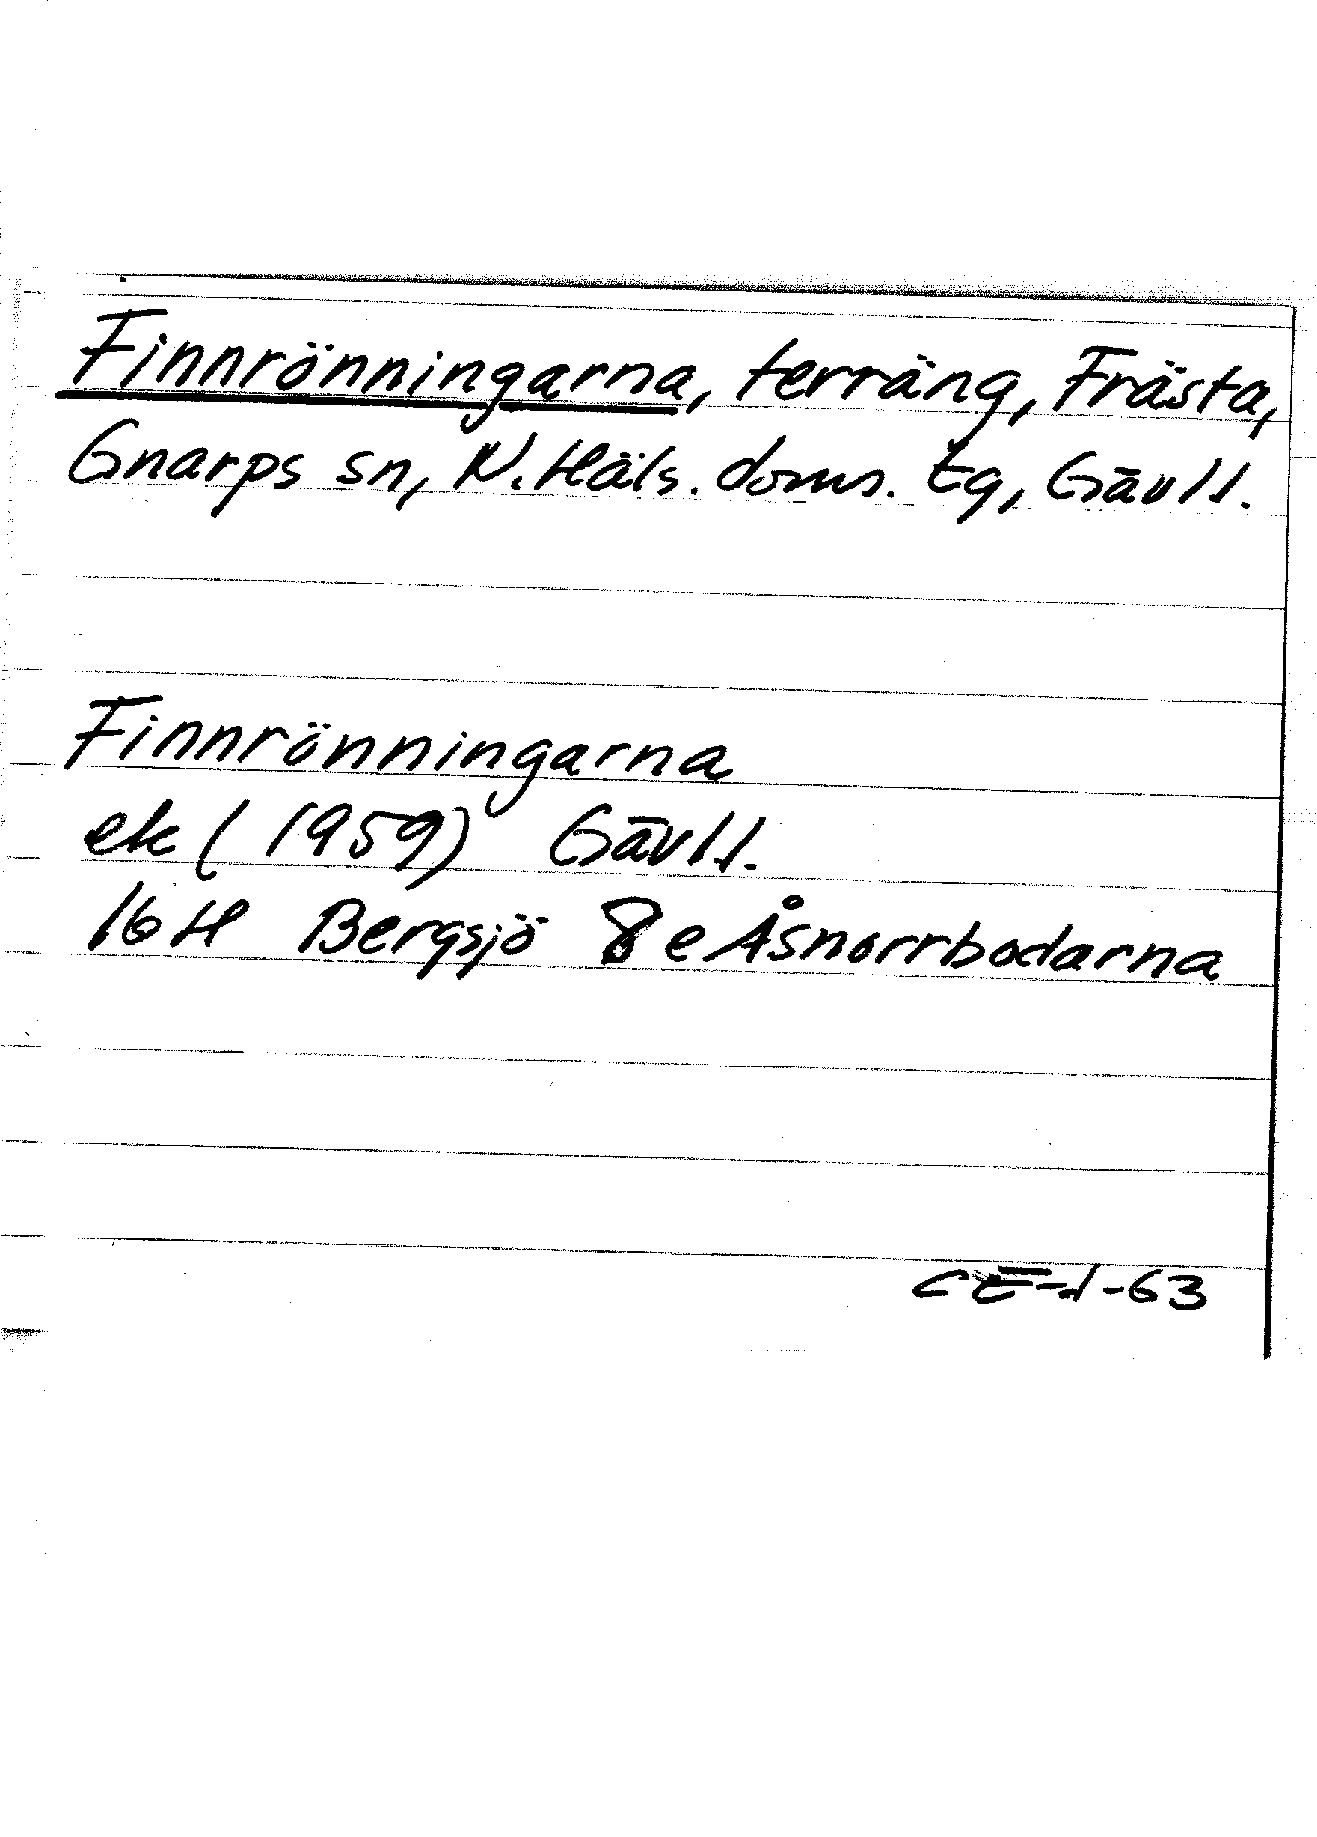 Finnrönningarna, terräng, Frästa,
Gnarps sn, N. Häls. doms. tg, Gävl l.
Finnrönningarna
ek (1959) Gävl l.
16 H Bergsjö 8 e Åsnorrbodarna
CE-1-63